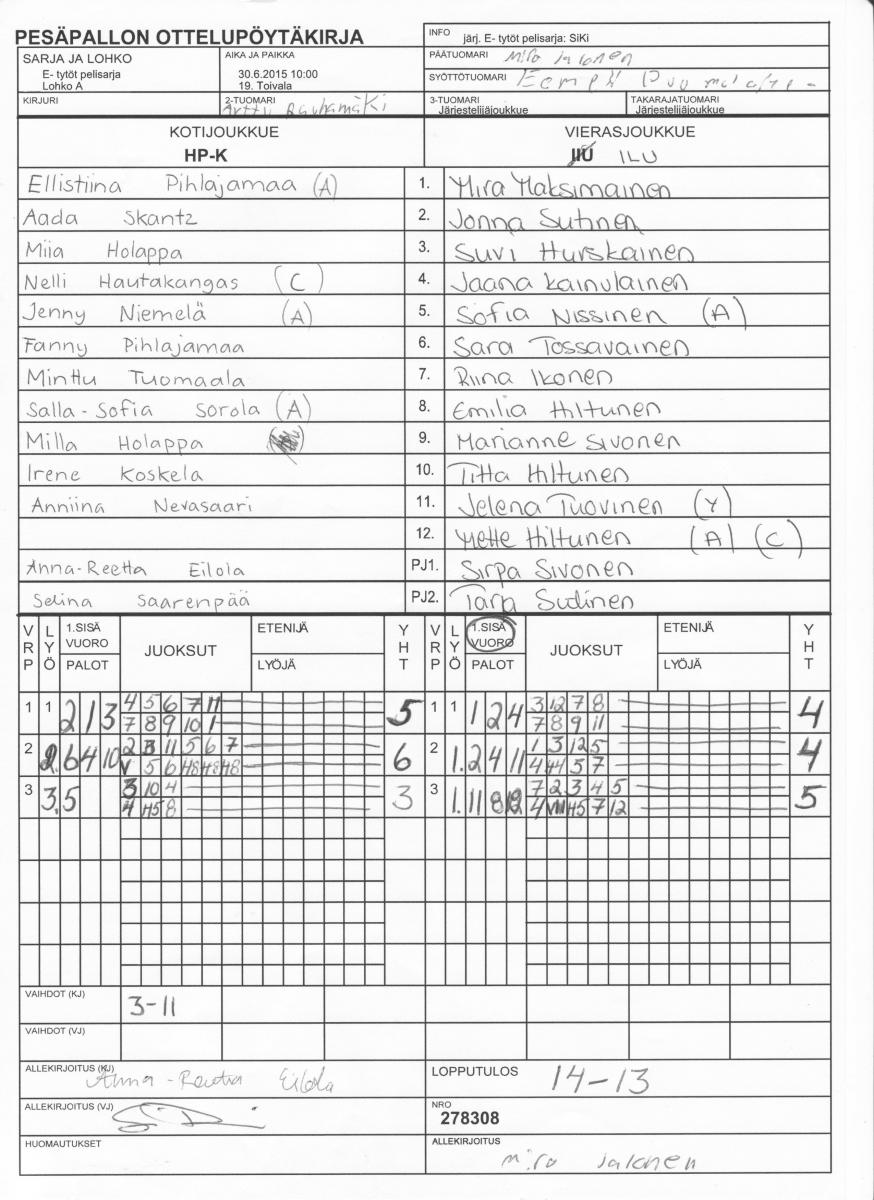 PESÄPALLON OTTELUPÖYTÄKIRJA
INFO järj. E- tytöt pelisarja: SiKi
SARJA JA LOHKO
E- tytöt pelisarja
Lohko A
AIKA JA PAIKKA
30.6.2015 10:00
19. Toivala
PÄÄTUOMARI Miro Jalonen
SYÖTTÖTUOMARI
KIRJURI
2-TUOMARI Arttu Rauhamäki
3-TUOMARI
Järjestelijäjoukkue
TAKARAJATUOMARI
Järjestelijäjoukkue
KOTIJOUKKUE
HP-K
VIERASJOUKKUE
ILU
Ellistiina Pihlajamaa (A) 1. Mira Maksimainen
Aada Skantz 2. Jonna Sutinen
Miia Holappa 3. Suvi Hurskainen
Nelli Hautakangas (C) 4. Jaana Kainulainen
Jenny Niemelä (A) 5. Sofia Nissinen (A)
Fanny Pihlajamaa 6. Sara Tossavainen
Minttu Tuomaala 7. Riina Ikonen
Salla-Sofia Sorola (A) 8. Emilia Hiltunen
Milla Holappa 9. Marianne Sivonen
Irene Koskela 10. Titta Hiltunen
Anniina Nevasaari 11. Jelena Tuovinen (Y)
12. Mette Hiltunen (A) (C)
Anna-Reetta Eilola PJ1. Sirpa Sivonen
Selina Saarenpää PJ2. Tarja Sutinen
VRP LYÖ 1.SISÄ VUORO PALOT JUOKSUT ETENIJÄ LYÖJÄ YHT VRP LYÖ 1.SISÄ VUORO PALOT JUOKSUT ETENIJÄ LYÖJÄ YHT
1 1 2 1 3 4 5 6 7 11 5 1 1 1 2 4 3 12 7 8 4
7 8 9 10 1 7 8 9 11
2 2. 6 4 10 2 3 11 5 6 7 6 2 1. 2 4 11 1 3 12 5 4
V 5 6 H8 H8 H8 4 H4 5 7
3 3. 5 3 10 4 3 3 1. 11 8 12 7 2 3 4 5 5
4 H5 8 4 H5 7 12
VAIHDOT (KJ) 3-11
VAIHDOT (VJ)
ALLEKIRJOITUS (KJ) Anna-Reetta Eilola
LOPPUTULOS 14-13
ALLEKIRJOITUS (VJ)
NRO
278308
HUOMAUTUKSET
ALLEKIRJOITUS
Miro Jalonen